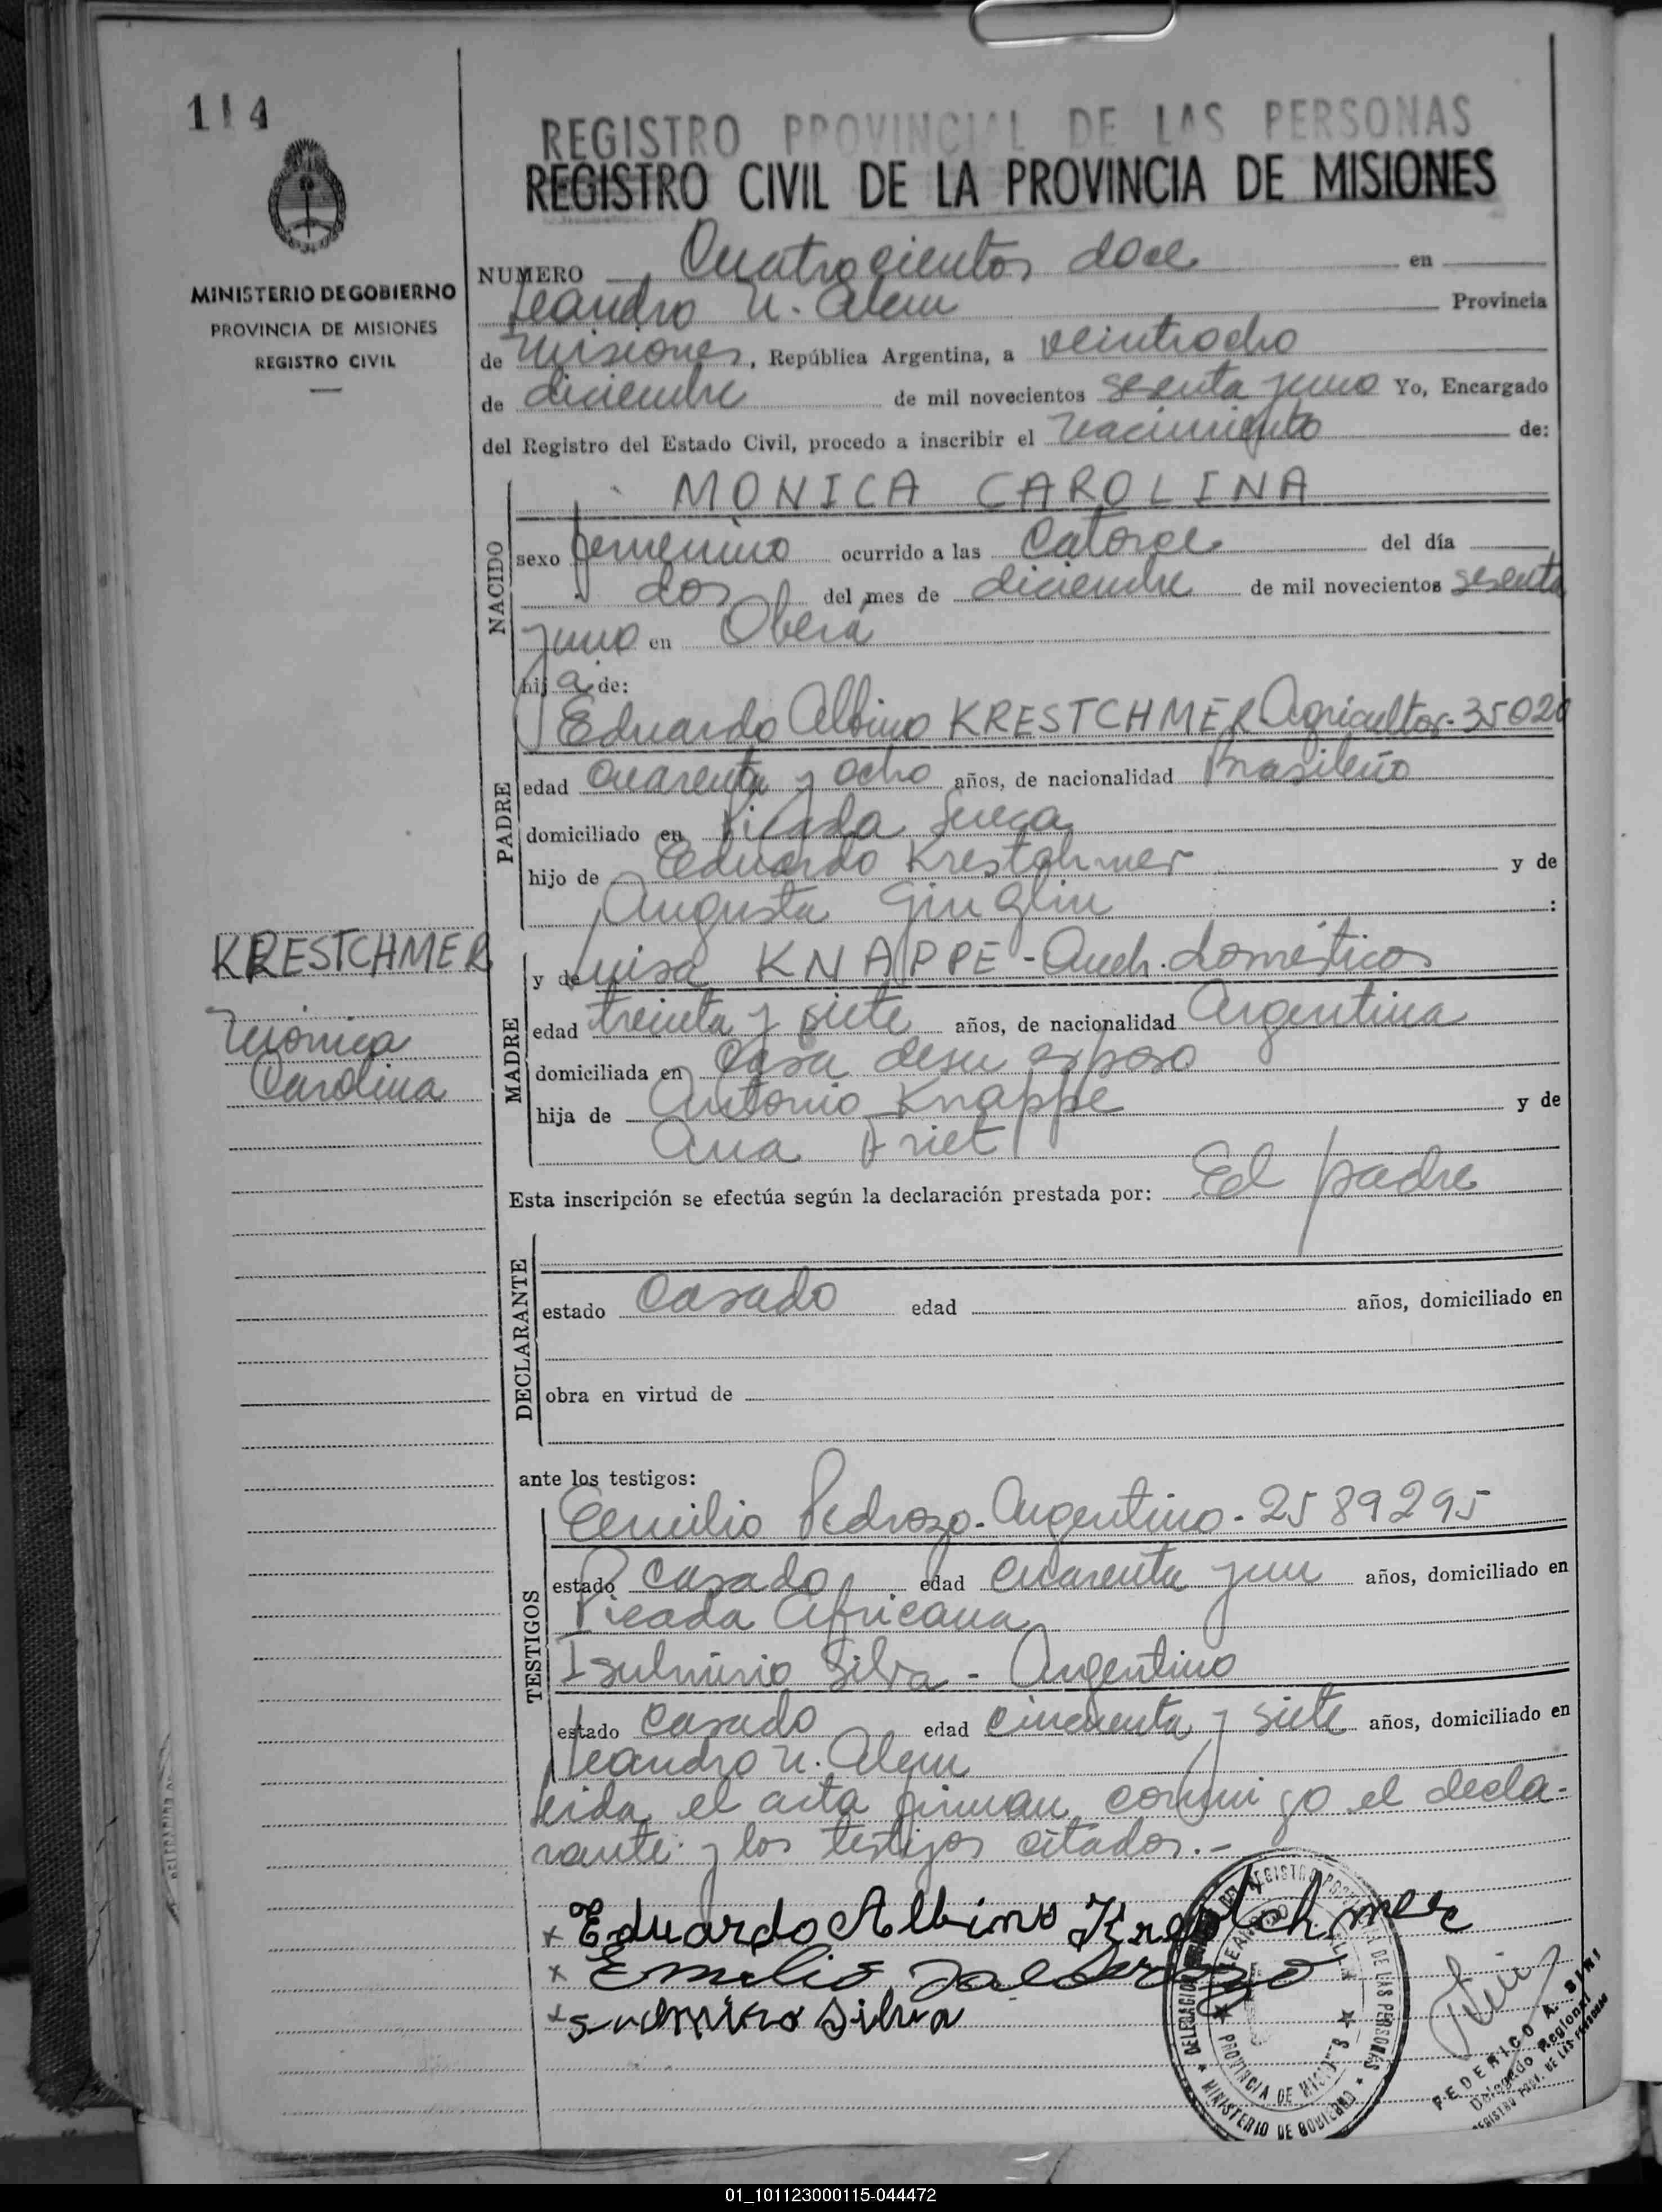 114
MINISTERIO DE GOBIERNO
PROVINCIA DE MISIONES
REGISTRO CIVIL
REGISTRO PROVINCIAL DE LAS PERSONAS
REGISTRO CIVIL DE LA PROVINCIA DE MISIONES
NUMERO Cuatrocientos doce en
Leandro N. Alem Provincia
de Misiones, República Argentina, a veintiocho
de diciembre de mil novecientos sesenta y uno Yo, Encargado
del Registro del Estado Civil, procedo a inscribir el nacimiento de:
NACIDO
MONICA CAROLINA
sexo femenino ocurrido a las catorce del día
dos del mes de diciembre de mil novecientos sesenta
y uno en Oberá
hija de:
PADRE
Eduardo Albino KRESTCHMER Agricultor-
edad cuarenta y ocho años, de nacionalidad Brasileño
domiciliado en Picada Sueca
hijo de Eduardo Krestchmer y de
Augusta :
KRESTCHMER
Mónica
Carolina
MADRE
y de Luisa KNAPPE - Queh. domésticos
edad treinta y siete años, de nacionalidad Argentina
domiciliada en casa de su esposo
hija de Antonio Knappe y de
Ana
Esta inscripción se efectúa según la declaración prestada por: El padre
DECLARANTE
estado Casado edad años, domiciliado en
obra en virtud de
ante los testigos:
TESTIGOS
Emilio Pedrozo - Argentino - 2589295
estado casado edad cuarenta y un años, domiciliado en
Picada Africana
Silva - Argentino
estado casado edad cincuenta y siete años, domiciliado en
Leandro N. Alem
Leida el acta firman conmigo el decla-
rante y los testigos citados.-
x Eduardo Albino Krestchmer
x Emilio
x Silva
DELEGACION DEL REGISTRO PROVINCIAL DE LAS PERSONAS
LEANDRO N. ALEM
PROVINCIA DE MISIONES
MINISTERIO DE GOBIERNO
FEDERICO A. SIRI
Delegado Regional
REGISTRO PROV. DE LAS PERSONAS
01_101123000115-044472